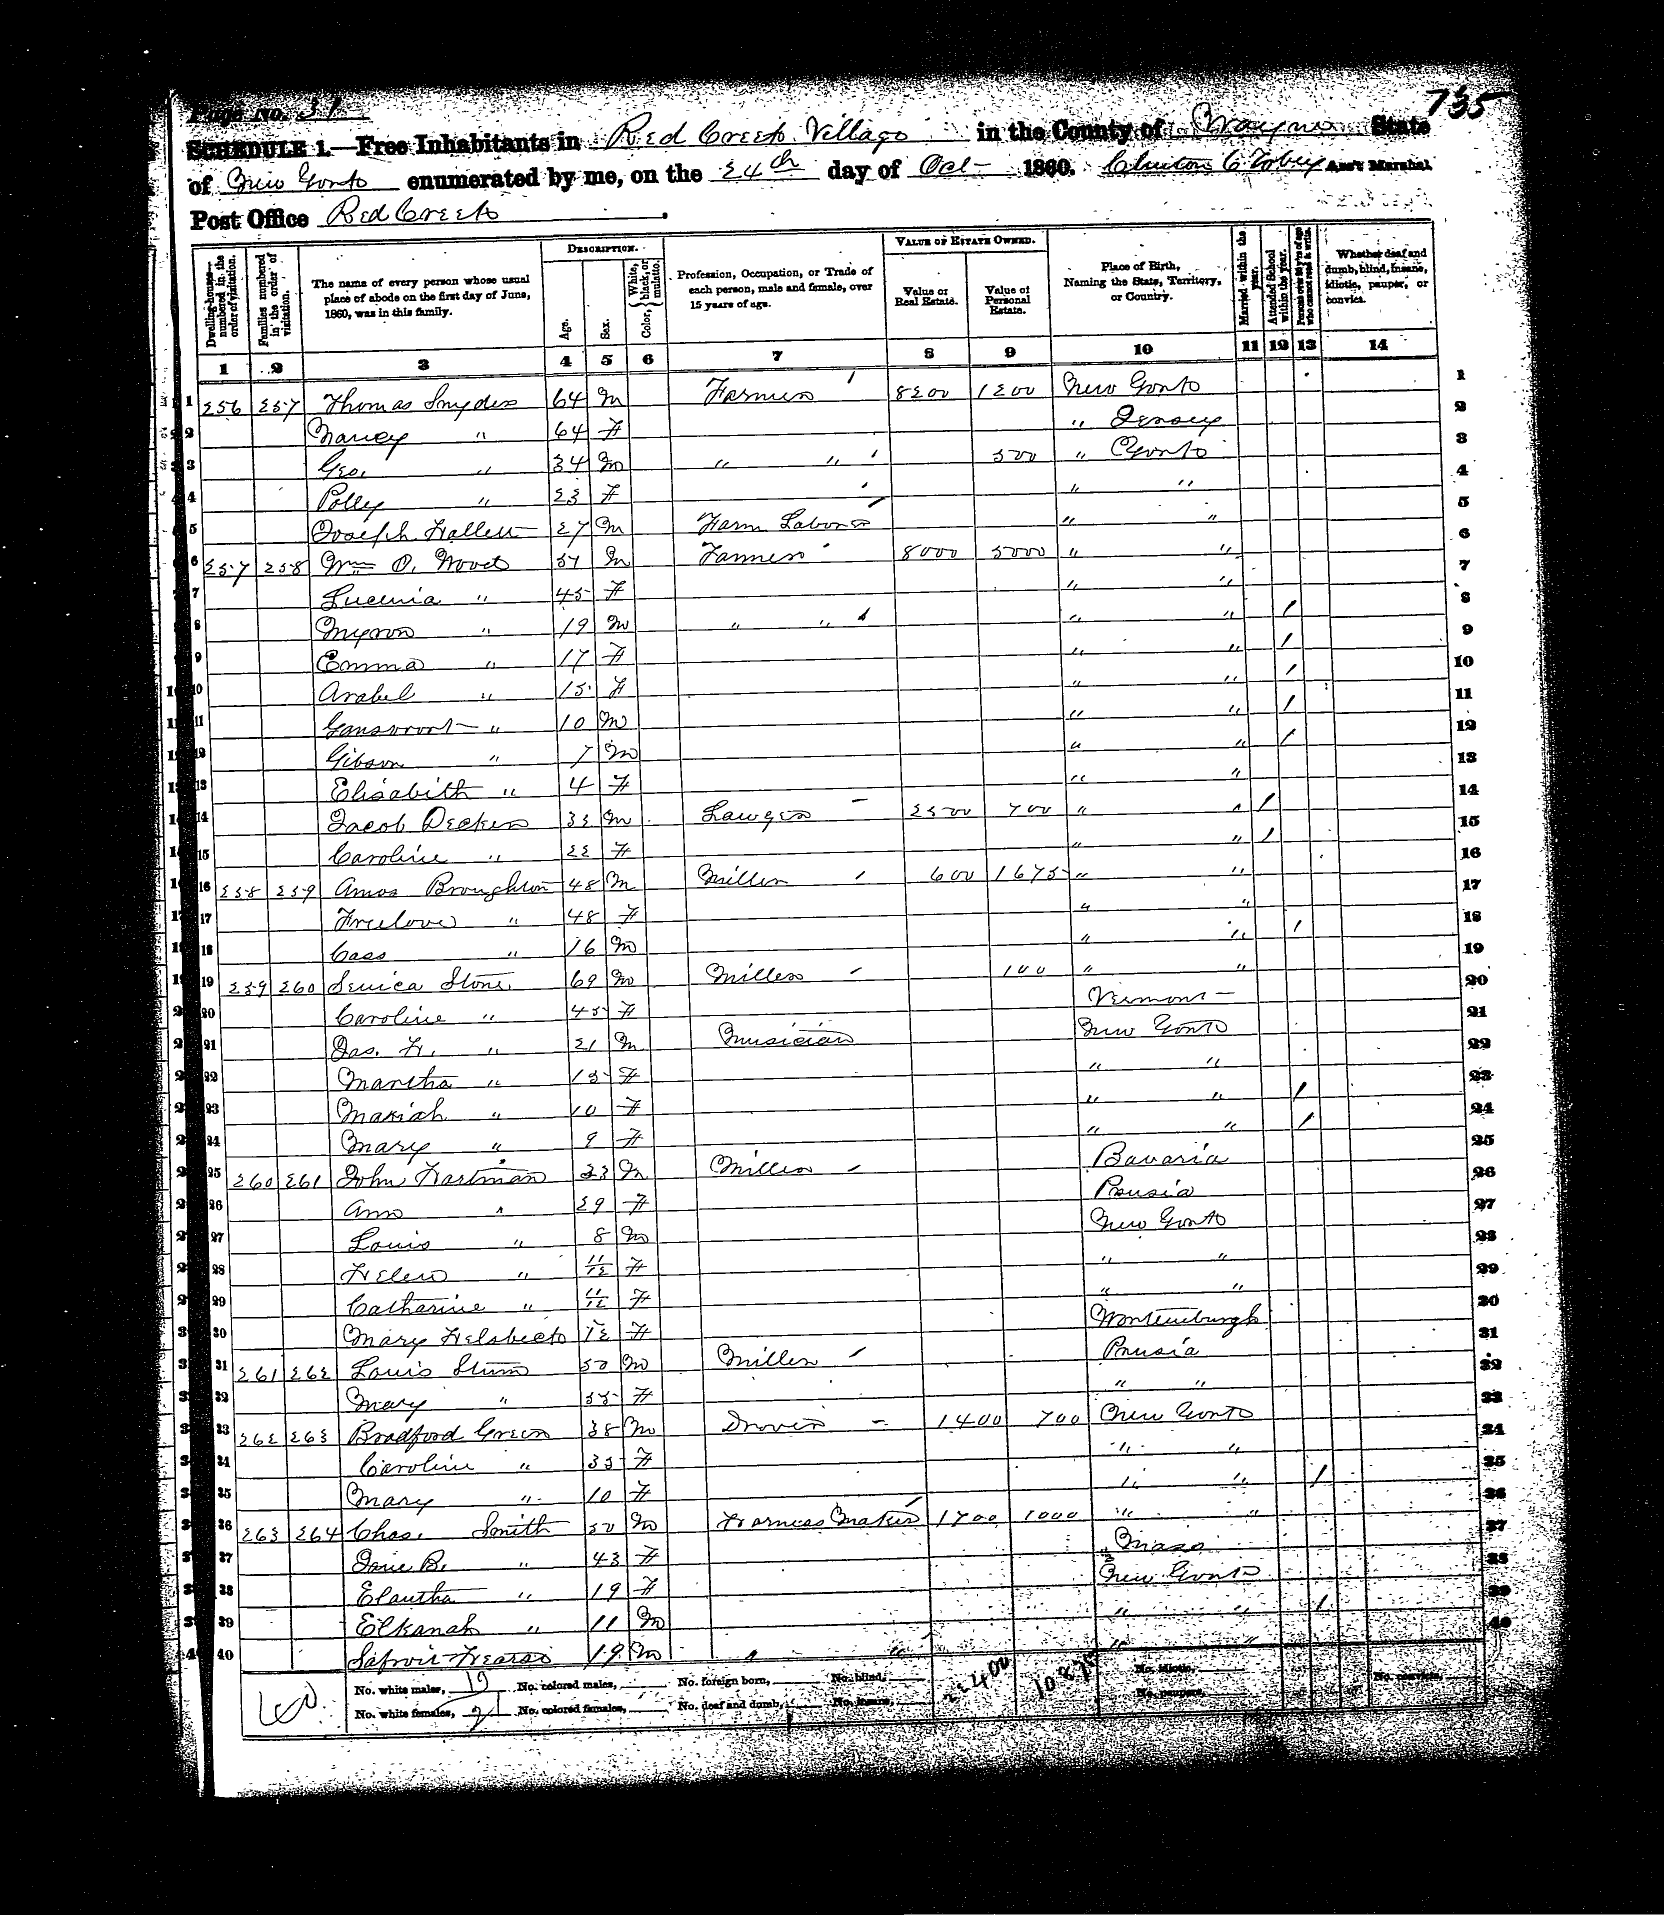 Page No. 31
735
SCHEDULE 1.—Free Inhabitants in Red Creek Village in the County of Wayne State
of New York enumerated by me, on the 24th day of Oct 1860. Clinton C Tobey Ass't Marshal.
Post Office Red Creek
Dwelling-houses— numbered in the order of visitation.
Families numbered in the order of visitation.
The name of every person whose usual place of abode on the first day of June, 1860, was in this family.
DESCRIPTION.
Age.
Sex.
Color, White, black, or mulatto.
Profession, Occupation, or Trade of each person, male and female, over 15 years of age.
VALUE OF ESTATE OWNED.
Value of Real Estate.
Value of Personal Estate.
Place of Birth, Naming the State, Territory, or Country.
Married within the year.
Attended School within the year.
Persons over 20 y'rs of age who cannot read & write.
Whether deaf and dumb, blind, insane, idiotic, pauper, or convict.
1 2 3 4 5 6 7 8 9 10 11 12 13 14
1 256 257 Thomas Snyder 64 M Farmer 8200 1200 New York 1
2 Nancy " 64 F " Jersey 2
3 Geo. " 34 M " " 500 " York 3
4 Polly " 23 F " " 4
5 Joseph Hallett 27 M Farm Labor " " 5
6 257 258 Wm O. Wood 51 M Farmer 8000 5000 " " 6
7 Lucenia " 45 F " " 7
8 Myron " 19 M " " " " / 8
9 Emma " 17 F " " / 9
10 Arabel " 15 F " " / 10
11 Gansvoort " 10 M " " / 11
12 Gibson " 7 M " " / 12
13 Elisabith " 4 F " " 13
14 Jacob Decker 33 M Lawyer 2500 700 " " / 14
15 Caroline " 22 F " " / 15
16 258 259 Amos Broughton 48 M Miller 600 1675 " " 16
17 Freelove " 48 F " " 17
18 Cass " 16 M " " / 18
19 259 260 Seneca Stone 69 M Miller 100 " " 19
20 Caroline " 45 F Vermont 20
21 Jas. H. " 21 M Musician New York 21
22 Martha " 15 F " " 22
23 Mariah " 10 F " " / 23
24 Mary " 9 F " " / 24
25 260 261 John Hartman 33 M Miller Bavaria 25
26 Ann " 29 F Prusia 26
27 Louis " 8 M New York 27
28 Helen " 11/12 F " " 28
29 Catharine " 11/12 F " " 29
30 Mary Helsbeck 12 F Wortemburgh 30
31 261 262 Louis Stum 50 M Miller Prusia 31
32 Mary " 55 F " " 32
33 262 263 Bradford Green 38 M Drover 1400 700 New York 33
34 Caroline " 33 F " " 34
35 Mary " 10 F " " / 35
36 263 264 Chas. Smith 50 M Harness Maker 1700 1000 " " 36
37 Jane B. " 43 F Mass 37
38 Elantha " 19 F New York 38
39 Elkanah " 11 M " " / 39
40 19 M " " " " 40
40
No. white males, 19 No. colored males, No. foreign born, No. blind, 22400 10875 No. idiotic, No. convicts,
No. white females, 21 No. colored females, No. deaf and dumb, No. insane, No. paupers,